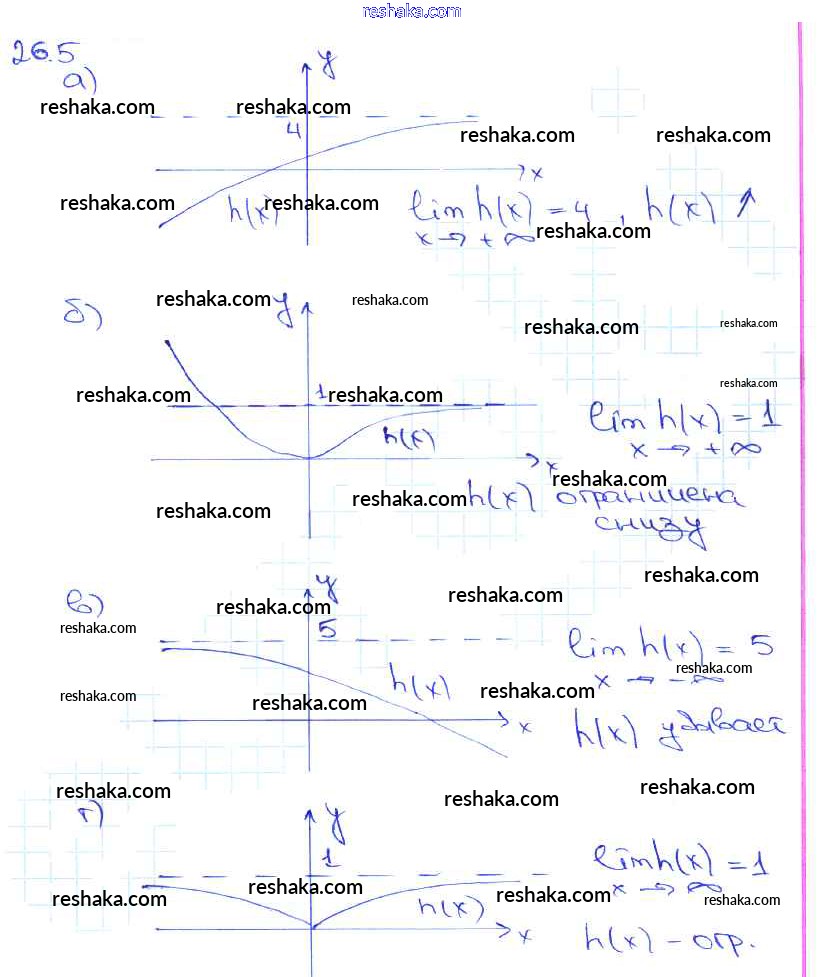 reshaka.com
26.5
а)
y
reshaka.com reshaka.com
4
reshaka.com reshaka.com
x
reshaka.com h(x) reshaka.com lim h(x) = 4, h(x) ↑
x → +∞ reshaka.com
б) reshaka.com y reshaka.com
reshaka.com reshaka.com
reshaka.com
reshaka.com 1 reshaka.com
h(x) lim h(x) = 1
x → +∞
x
reshaka.com
reshaka.com reshaka.com h(x) ограничена
снизу
reshaka.com
y
в) reshaka.com reshaka.com
reshaka.com 5
lim h(x) = 5
x → -∞ reshaka.com
reshaka.com h(x) reshaka.com
reshaka.com
x h(x) убывает
reshaka.com reshaka.com reshaka.com
г) y
1
lim h(x) = 1
x → ∞
reshaka.com reshaka.com reshaka.com reshaka.com
h(x)
x h(x) - огр.